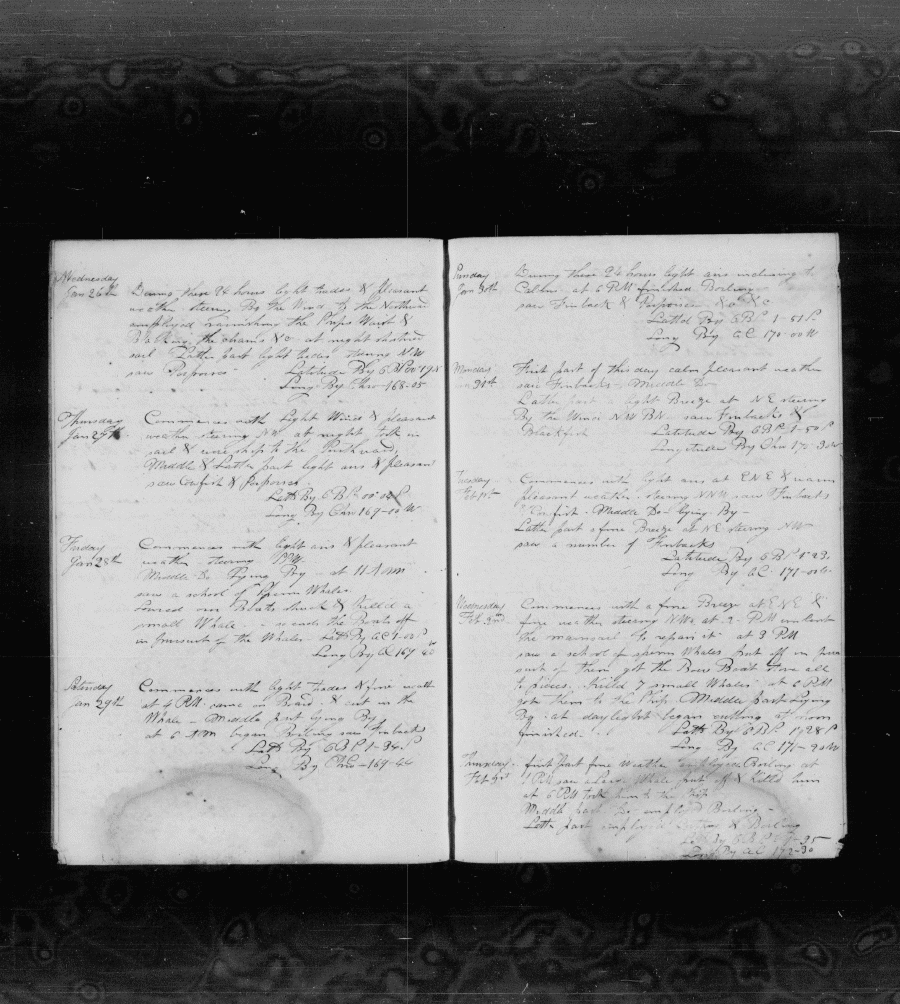 Wednesday
Jan 26th During these 24 hours light trades & pleasant
weather steering By the Wind to the Northward
employed varnishing the Ships Waist &
the chains &c at night shortened
sail Latter part light trades steering NW
saw Porpoises Latitude By
Long By Chro 168-05
Thursday
Jan 27th Commences with Light Winds & pleasant
weather steering NW at night took in
sail & wore ship to the Southward,
Middle & Latter part light airs & pleasant
saw Cowfish & Porpoises.
Latt By 6 B P 00-02
Long By Chro 169-10 W
Friday
Jan 28th Commences with light airs & pleasant
weather steering
Middle Do Lying By - at 11 A m
saw a school of Sperm Whales
Lowered our Boats struck & killed a
small Whale - so ends the Boats off
in pursuit of the Whales Latt By AC 1-02
Long By AC 169-40
Saturday
Jan 29th Commences with light trades & fine weather
at 4 PM came on Board & cut in the
Whale - Middle part lying By
at 6 A m began Boiling saw finbacks
Latt By 6 B P 1-34
Long By Chro - 169-44
Sunday
Jan 30th During these 24 hours light airs inclining to
Calm at 6 PM finished Boiling
saw Finback & Porpoises &c &c
Lattd By 6 B P 1-51
Long By AC 170-00 W
Monday
31st First part of this day calm pleasant weather
saw Finbacks - Middle Do
Latter part a light Breeze at NE steering
By the Wind NW BN saw Finbacks &
Blackfish Latitude By 6 B P 1-50
Longitude By Chro
Tuesday
Feb 1st Commences with light airs at ENE & warm
pleasant weather steering NNW saw Finbacks
& Cowfish - Middle Do - lying By -
Latter part a fine Breeze at NE steering NW
saw a number of Finbacks
Latitude By 6 B P 1-23
Long By AC 171-00
Wednesday
Feb 2nd Commences with a fine Breeze at ENE &
fine weather steering NW at 2 PM unbent
the mainsail to repair it at 3 PM
saw a school of sperm Whales put off in
of them got the Bow Boat stove all
to pieces. killd 7 small Whales at 6 PM
got them to the Ship. Middle part Lying
By at daylight began cutting at noon
finished. Latt By 6 B P 1-28
Long By AC 171-20 W
Thursday
Feb first part fine Weather employed Boiling at
1 PM saw a Whale put off & killd him
at 6 PM took him to the Ship
Middle part employed Boiling -
Latter part employed & Boiling
By
Long By AC 172-30